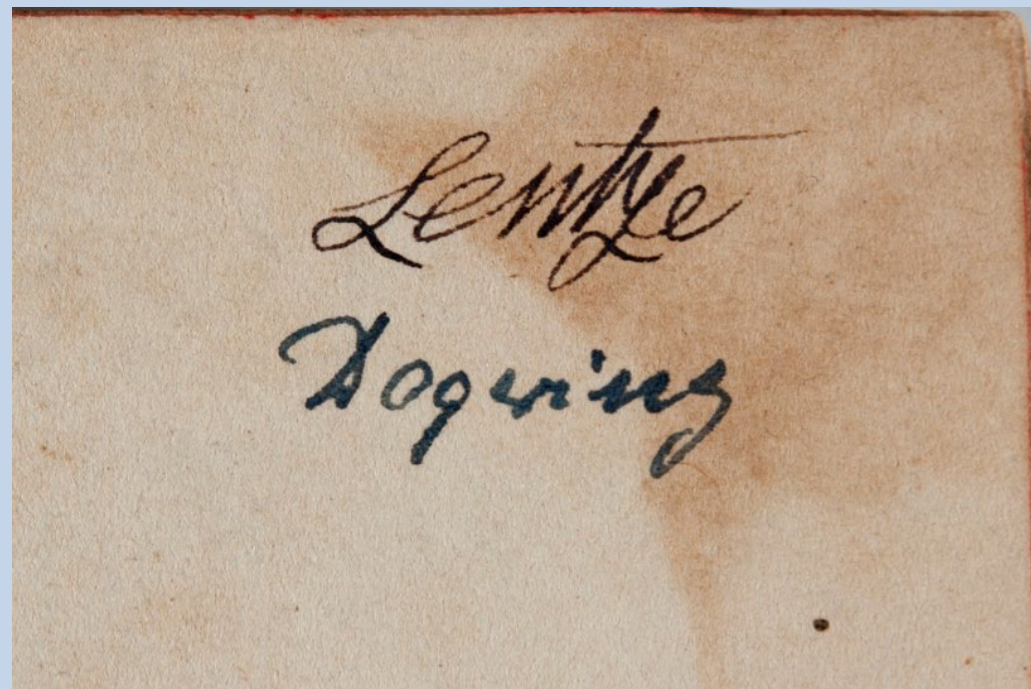 Lentze
Dogwing